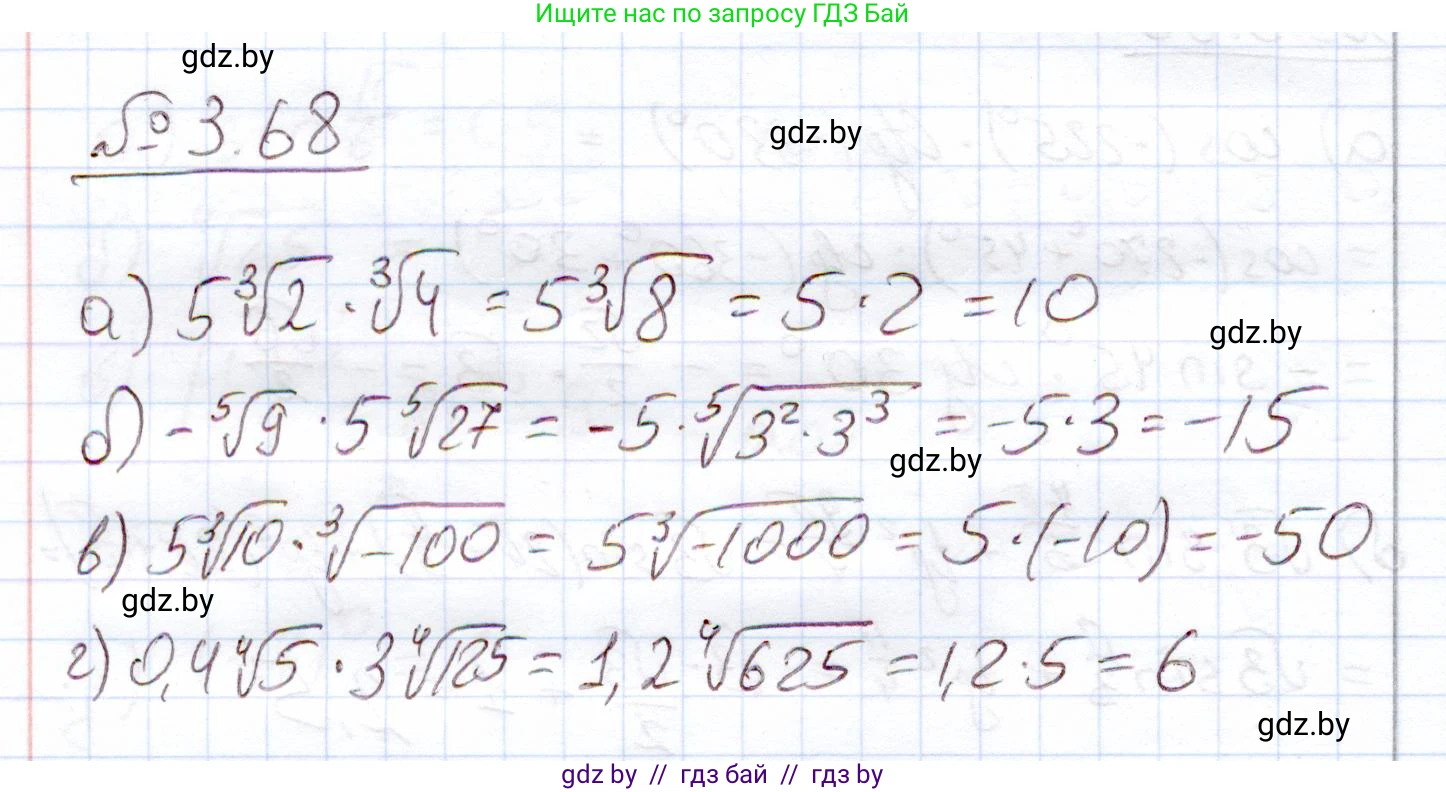 Ищите нас по запросу ГДЗ Бай
gdz.by
№ 3.68
gdz.by
а) 5∛2 · ∛4 = 5∛8 = 5·2 = 10
gdz.by
б) -⁵√9 · 5 ⁵√27 = -5·⁵√(3²·3³) = -5·3 = -15
gdz.by
в) 5∛10 · ∛-100 = 5∛-1000 = 5·(-10) = -50
gdz.by
г) 0,4 ∜5 · 3 ∜125 = 1,2 ∜625 = 1,2·5 = 6
gdz.by
gdz by // гдз бай // гдз by